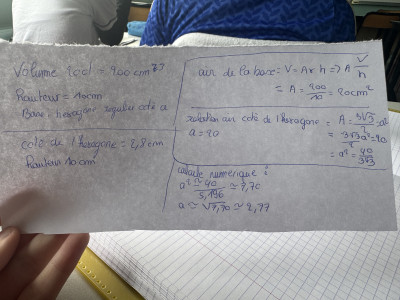 Volume 20cl = 200 cm³
Hauteur = 10cm
Base : hexagone regulier coté a
coté de l'hexagone = 2,8cm
Hauteur 10 cm
air de la base = V = A × h => A V/h
= A = 200/10 = 20cm²
relation air coté de l'hexagone = A = 3√3/2 a²
a = 20
= 3√3a²/2 = 20
= a² = 40/3√3
calcule numerique :
a² ≃ 40/5,196 ≃ 7,70
a ≃ √7,70 ≃ 2,77